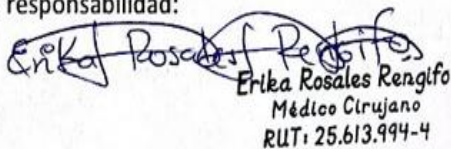 responsabilidad:
Erika Rosales Rengifo
Erika Rosales Rengifo
Médico Cirujano
RUT: 25.613.994-4